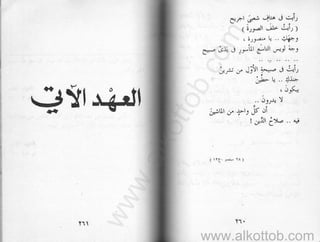 رأيت في هتاف شعبي الجريح
( رأيتُ خلف الصورة )
وجهكِ .. يا منصورة ،
وجه لويس التاسع المأسور في يديْ صبيح
.. .. .. .. ..
رأيتُ في صبيحة الأول من تشرينْ
جندَكِ .. يا حطينْ
يبكون ،
لا يدرون ..
أن كلَّ واحدٍ من الماشينْ
فيه .. صلاحُ الدين !
٢٦٠
العهد الآتي
٢٦١
www.alkottob.com
www.alkottob.com